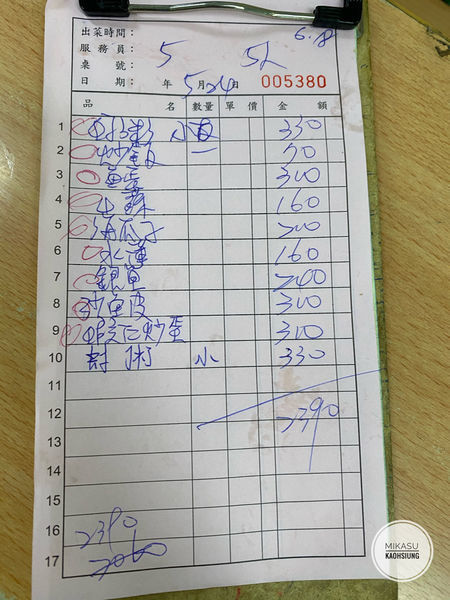 出菜時間： 6.8
服務員： 5 5人
桌號：
日期： 年 5月24日 005380
品名 數量 單價 金額
1 小 330
2 炒飯 一 70
3 300
4 160
5 海瓜子 200
6 水蓮 160
7 240
8 炒魚皮 300
9 蝦仁炒蛋 300
10 小 330
11
12 2390
13
14
15
16 2390
17 2060
MIKASU
KAOHSIUNG